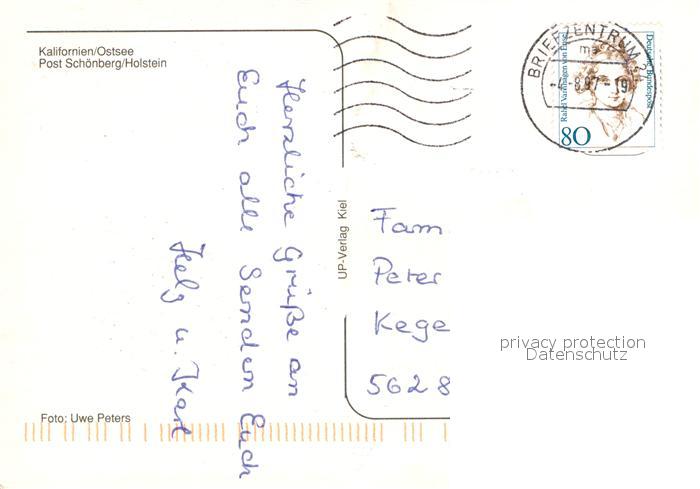 Kalifornien/Ostsee
Post Schönberg/Holstein
Herzliche Grüße an
Euch alle Senden Euch
Helg u. Karl
Foto: Uwe Peters
UP-Verlag Kiel
BRIEFZENTRUM 24
-4.-8.97-19
Deutsche Bundespost
Rahel Varnhagen von Ense
80
Fam
Peter
Kege
5628
privacy protection
Datenschutz